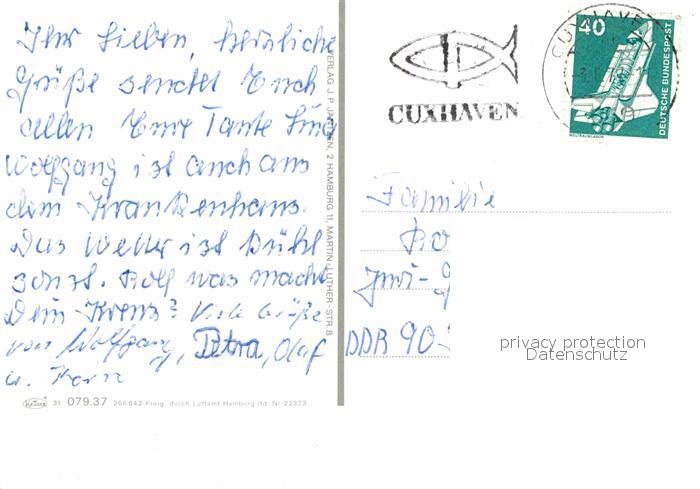 Ihr Lieben, herzliche
Grüße sendet Euch
allen Eure Tante
Wolfgang ist auch aus
dem Krankenhaus.
Das Wetter ist Kühl
sonst. Rolf was macht
Dein Kreuz? Viele Grüße
von Wolfgang, Petra, Olaf
u.
VERLAG J. P. JANSEN, 2 HAMBURG 11, MARTIN-LUTHER-STR. 8
31 079.37 266 842 Freig. durch Luftamt Hamburg lfd. Nr 22373
CUXHAVEN
CUXHAVEN
40
DEUTSCHE BUNDESPOST
WELTRAUMLABOR
Familie
DDR 90
privacy protection
Datenschutz